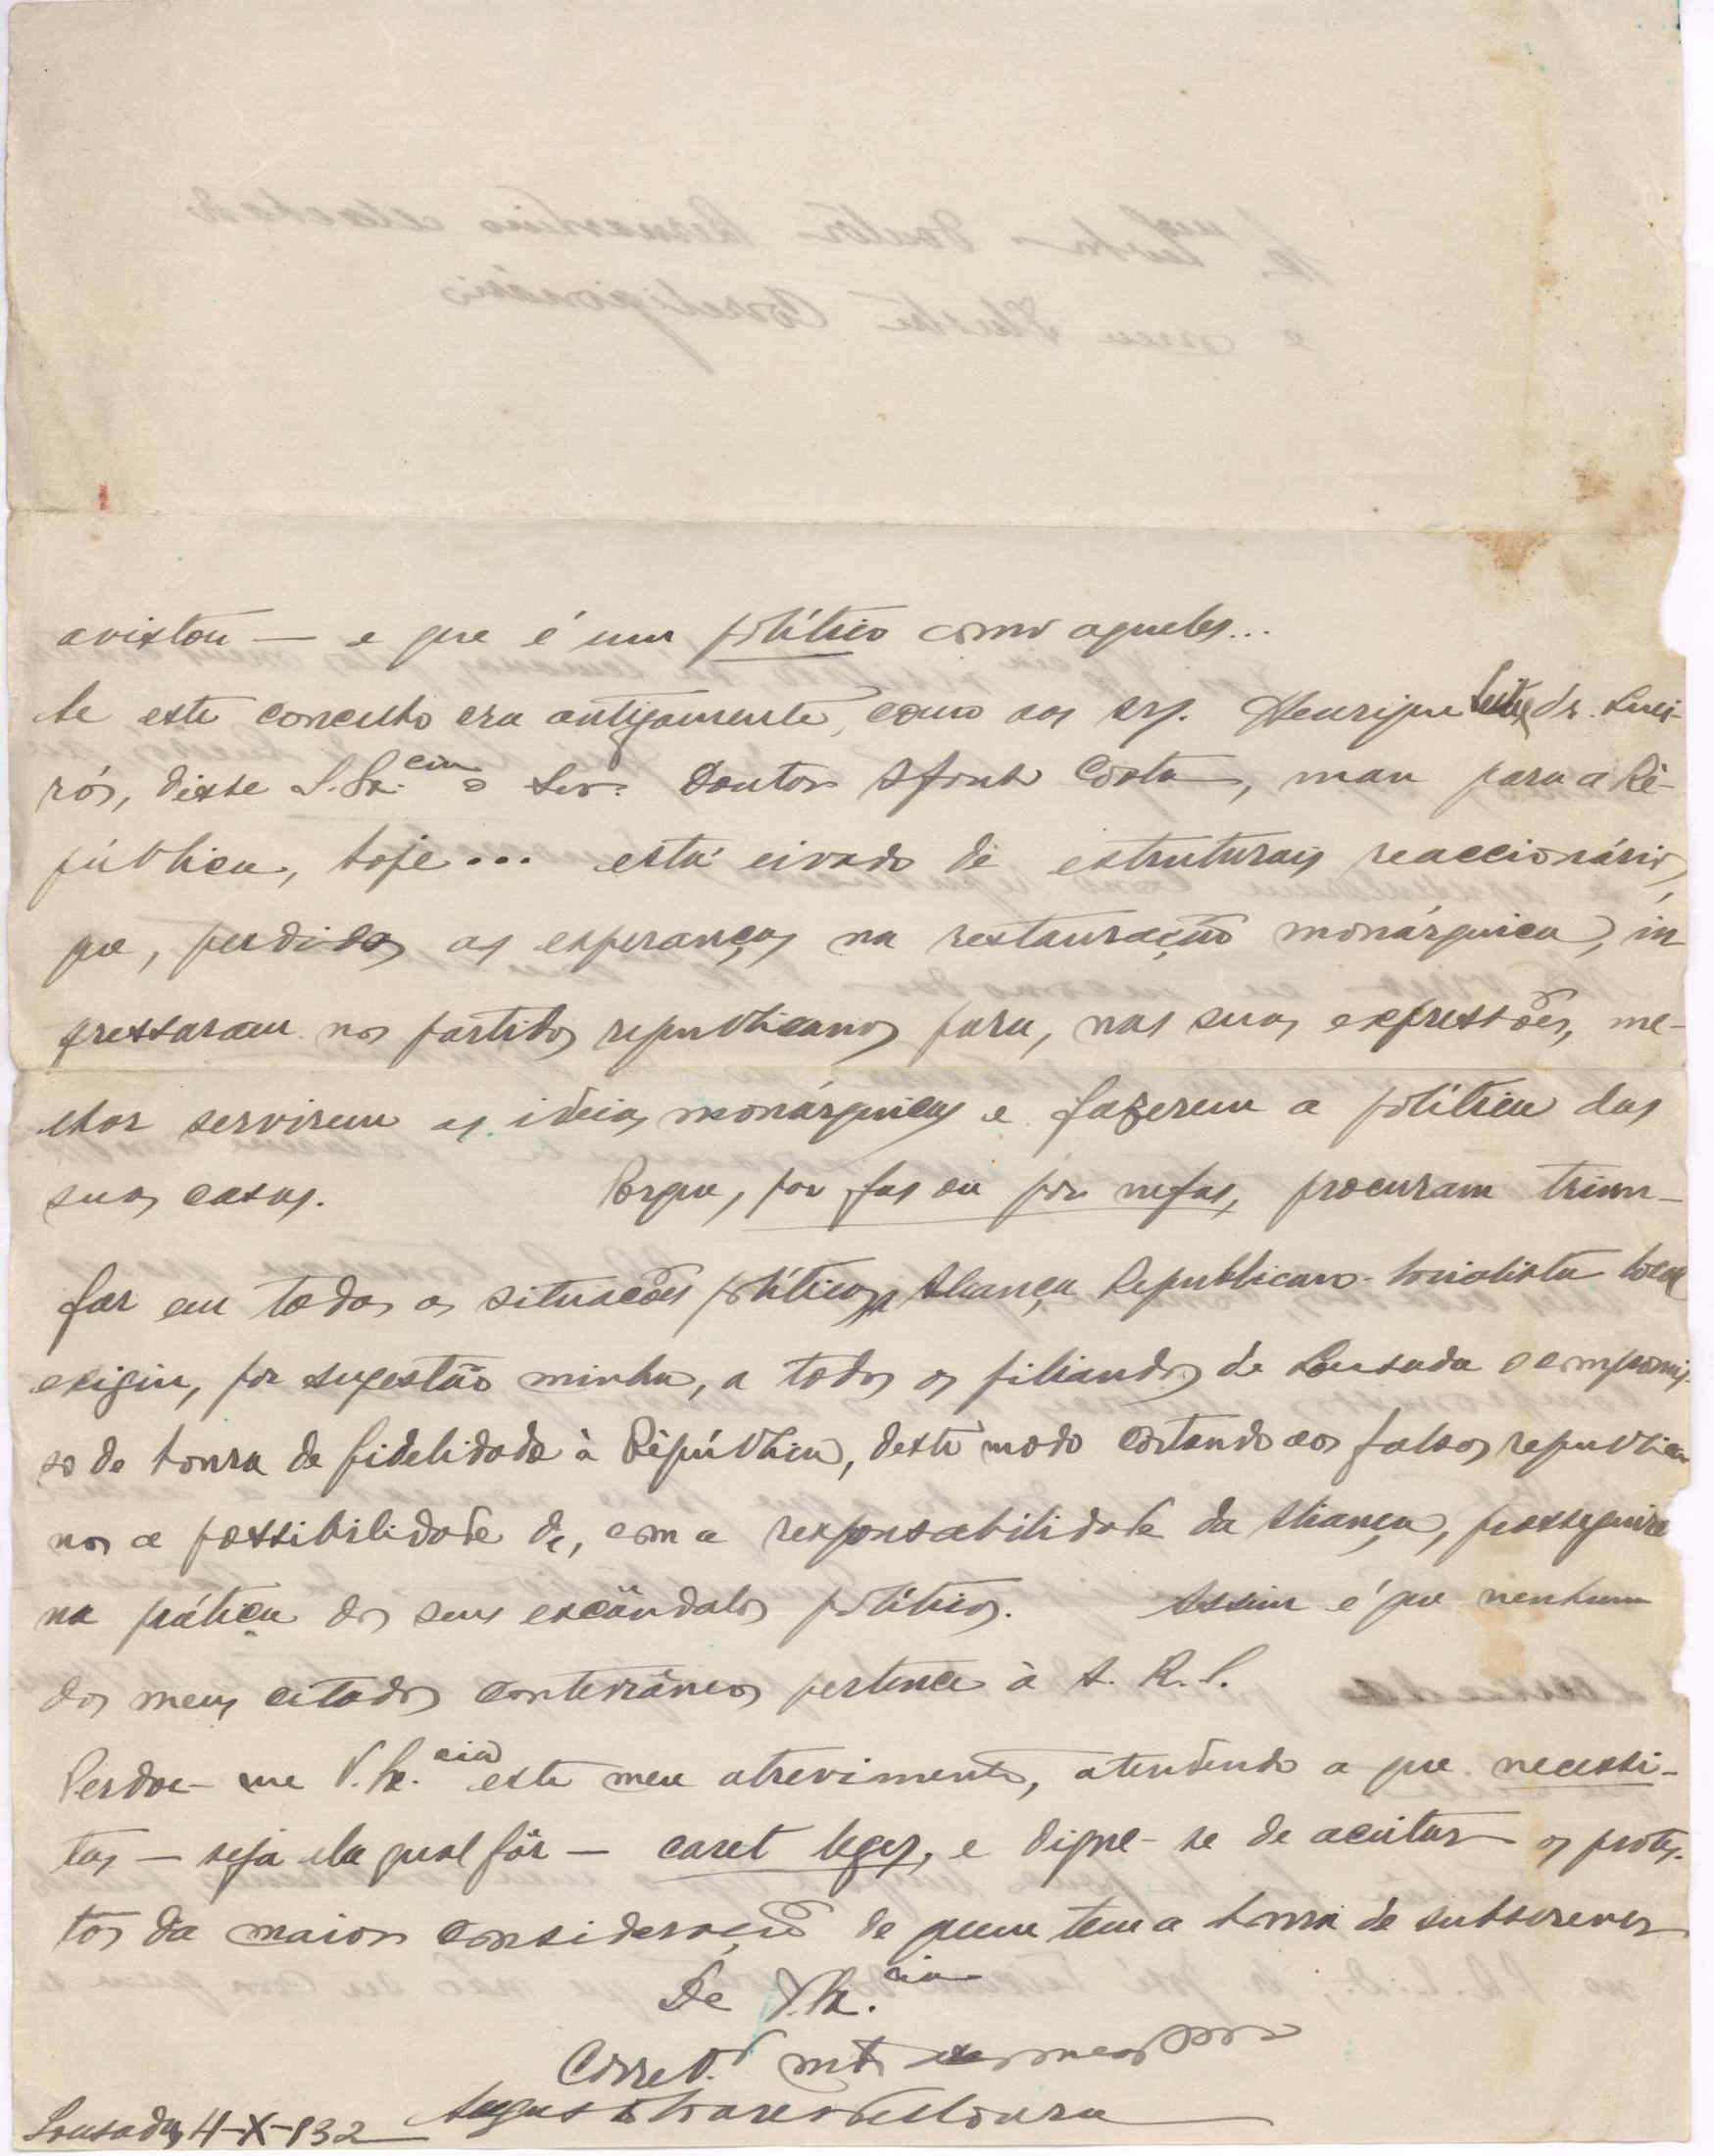 avistou — e que é um político como aqueles...
Se este concelho era antigamente, como aos srs. Henrique Leite, dr. Quei-
rós, disse S. Ex.cia o Snr. Doutor Afonso Costa, mau para a Rè-
pública, hoje... está eivado de estruturais reaccionários
que, perdidas as esperanças na restauração monárquica, in-
gressaram nos partidos republicanos para, nas suas expressões, me-
lhor servirem as ideias monárquicas e fazerem a política das
suas casas. Porque, por fas ou por nefas, procuram triun-
far em todas as situações políticas, a Aliança Republicano-Socialista local
exigiu, por sugestão minha, a todos os filiandos de Lousada o compromis-
so de honra de fidelidade à Rèpública, deste modo cortando aos falsos republica-
nos a possibilidade de, com a responsabilidade da Aliança, prosseguirem
na prática dos seus escândalos políticos. Assim é que nenhum
dos meus citados conterrâneos pertence à A. R. S.
Perdoe-me V. Ex.cia este meu atrevimento, atendendo a que necessi-
tas — seja ela qual fôr — caret leges, e digne-se de aceitar os protes-
tos da maior consideração de quem tem a honra de subscrever
De V. Ex.cia
Corre.
Augusto Soares de Moura
Lousada, 4-X-932